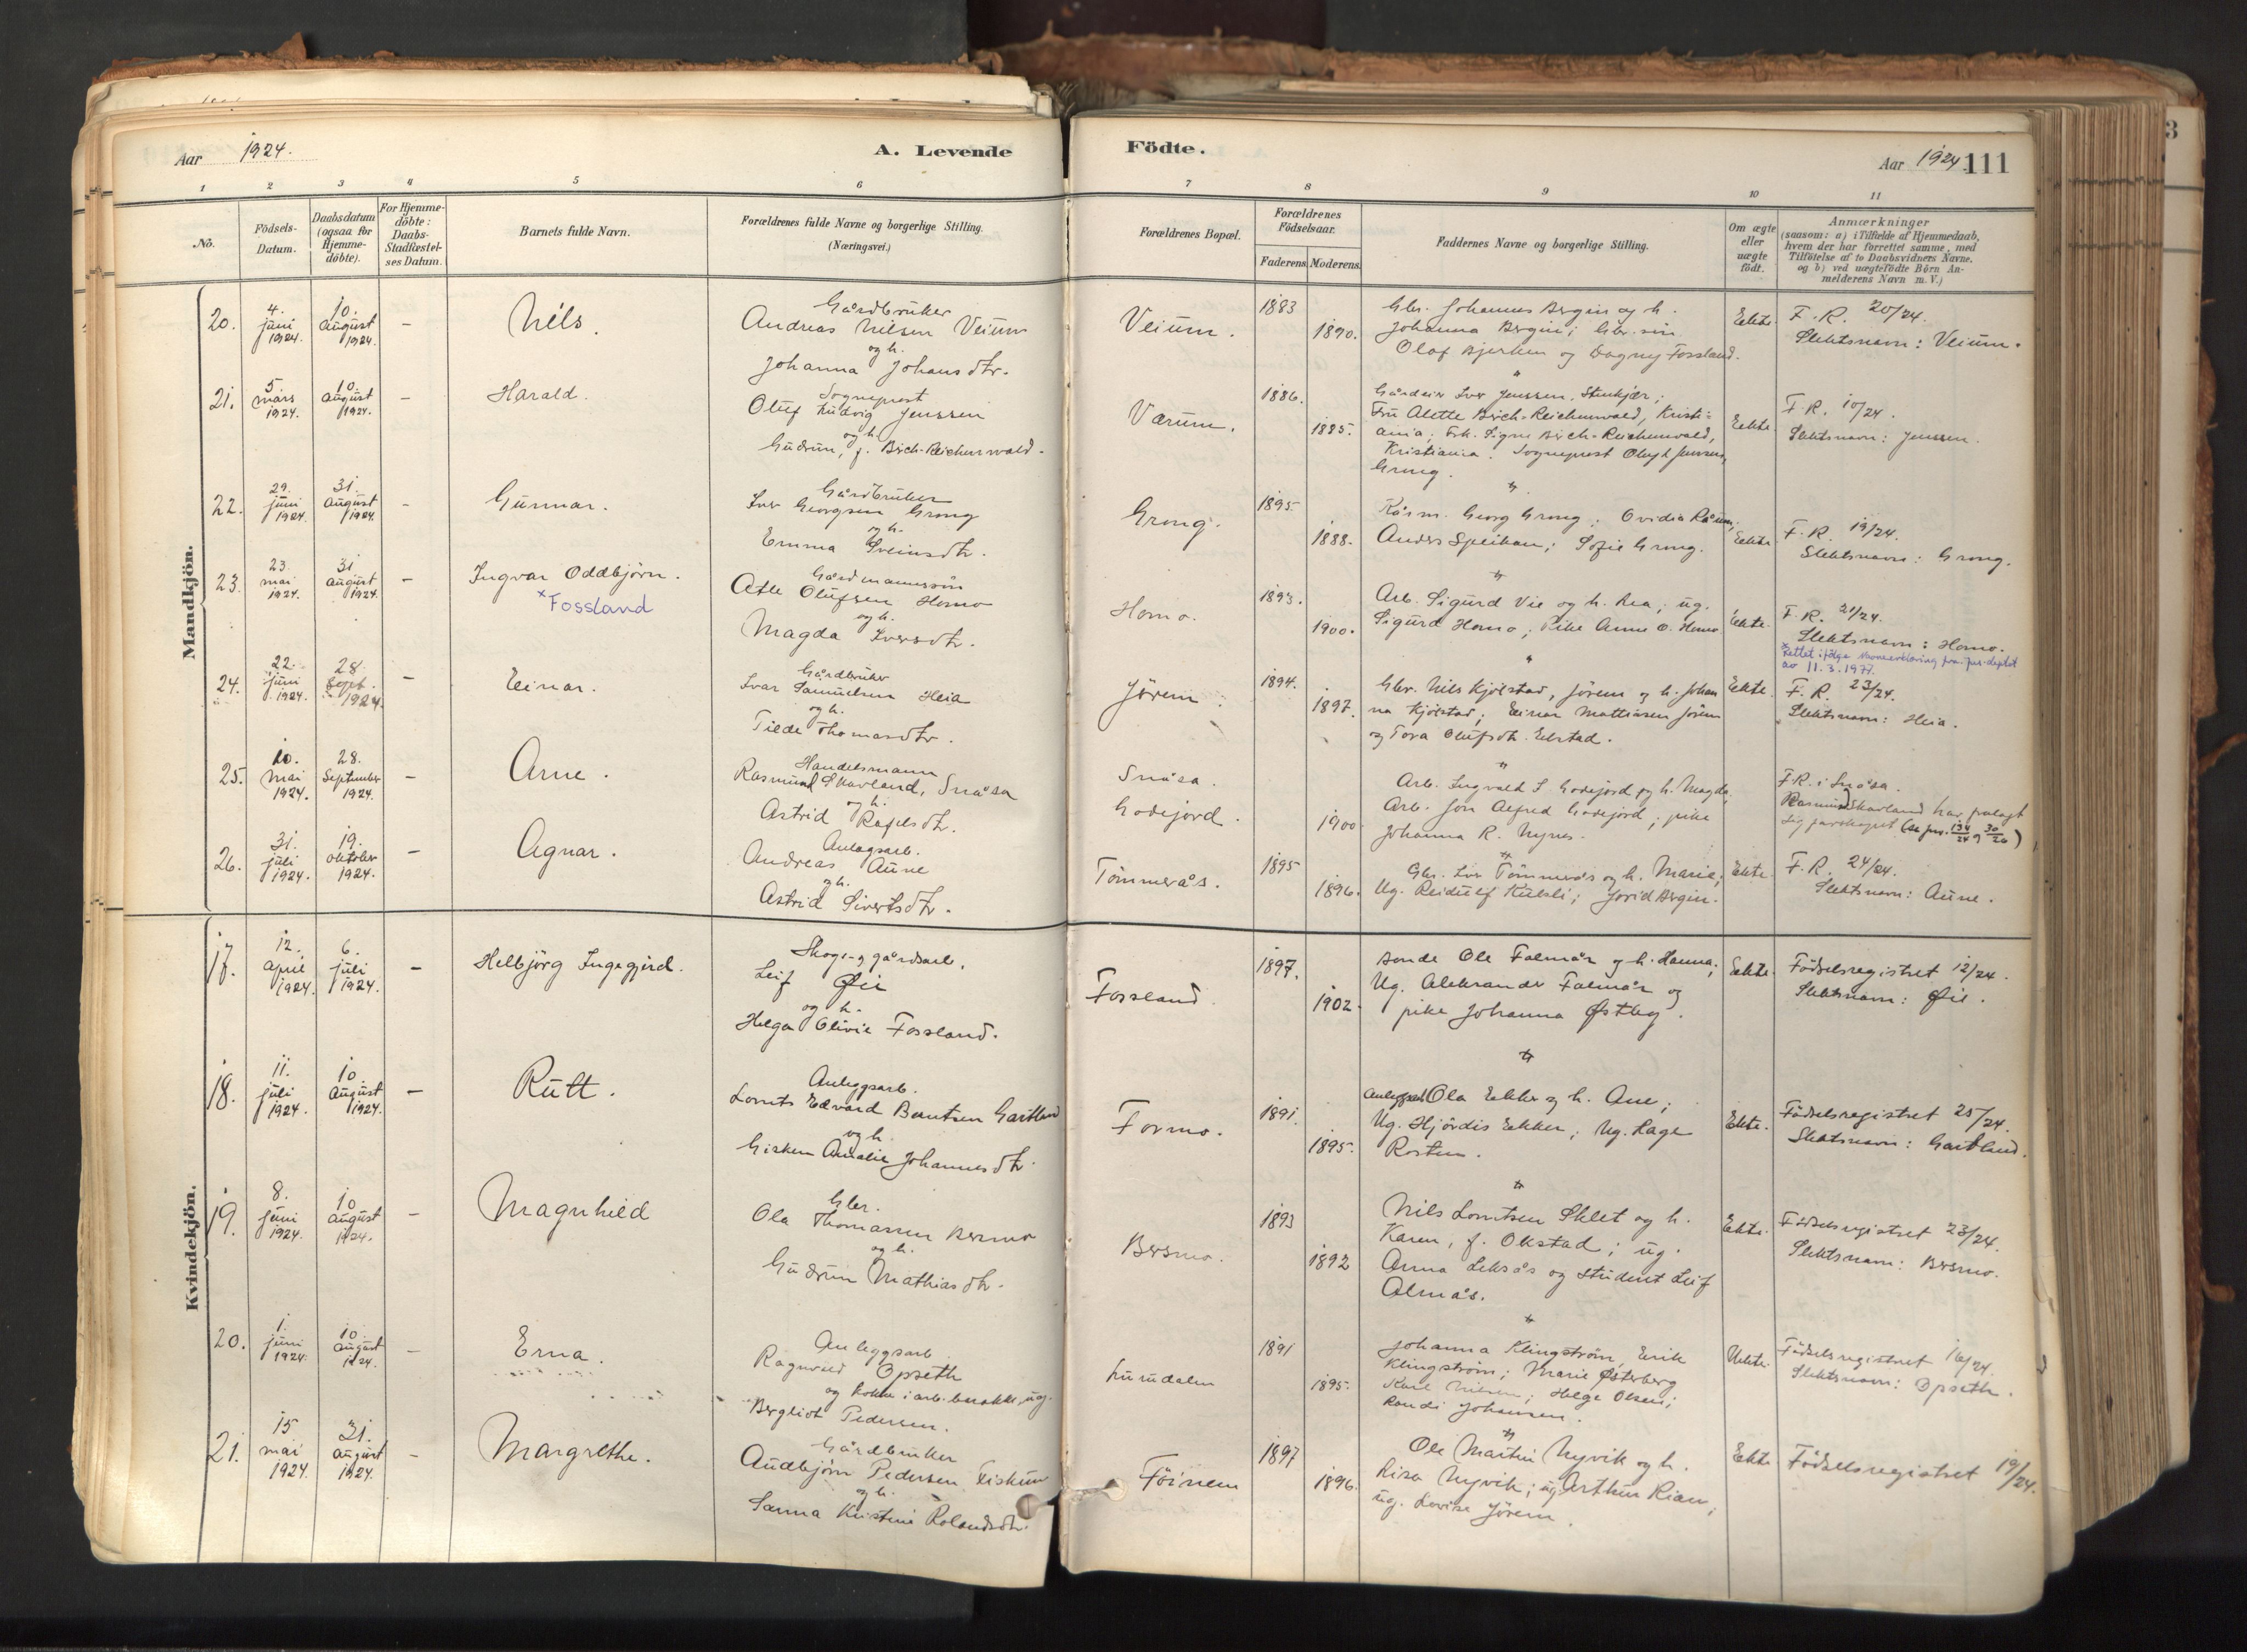 Aar 1924.
A. Levende
Födte.
Aar 1924.
111
3
1 2 3 4 5 6 7 8 9 10 11
No.
Födsels-
Datum.
Daabsdatum
(ogsaa for
Hjemme-
döbte).
For Hjemme-
döbte:
Daabs-
Stadfæstel-
ses Datum.
Barnets fulde Navn.
Forældrenes fulde Navne og borgerlige Stilling.
(Næringsvei.)
Forældrenes Bopæl.
Forældrenes
Födselsaar.
Faderens Moderens
Faddernes Navne og borgerlige Stilling.
Om ægte
eller
uægte
födt.
Anmærkninger
(saasom: a) i Tilfælde af Hjemmedaab,
hvem der har forrettet samme, med
Tilföielse af to Daabsvidners Navne.
og b) ved uægtefödte Börn An-
melderens Navn m. V.)
Mandkjön.
20.
4.
juni
1924.
10.
august
1924.
-
Nils.
Gårdbruker
Andreas Nilsen Veium
og h.
Johanna Johansdtr.
Veium.
1883
1890.
Gbr. Johannes Bergin og h.
Johanna Bergin; Gbr. sön
Olaf Bjerken og Dagny Fossland.
Ekte.
F. R. 20/24.
Slektsnavn: Veium.
21.
5.
mars
1924.
10.
august
1924.
-
Harald.
Sogneprest
Oluf Ludvig Jenssen
og h.
Gudrun, f. Birch-Reichenwald.
Værum.
1886.
1885.
Gårdeier Iver Jenssen, Stenkjær;
Fru Alette Birch-Reichenwald, Kristi-
ania; Frk. Signe Birch-Reichenwald,
Kristiania. Sogneprest Oluf L. Jenssen,
Grong.
Eekte.
F. R. 10/24.
Slektsnavn: Jenssen.
22.
29.
juni
1924.
31.
august
1924.
-
Gunnar.
Gårdbruker
Iver Georgsen Grong
og h.
Emma Sveinsdtr.
Grong.
1895
1888.
Georg Grong; Ovidia
Anders Speikan; Sofie Grong.
Eekte
F. R. 19/24.
Slektsnavn: Grong.
23.
23.
mai
1924.
31
august
1924.
-
Ingvar Oddbjörn.
x Fossland
Gårdmannssön
Atle Olufsen Homo
og h.
Magda Iversdtr.
Homo.
1893.
1900.
Arb. Sigurd Vie og h. Rea; ug.
Sigurd Homo; Pike Anne O. Homo
Eekte.
F. R. 21/24.
Slektsnavn: Homo.
x Rettet ifölge Navneerklæring fra jus.deptet
av 11.3.1977.
24.
22.
juni
1924.
28.
Sept.
1924.
-
Einar.
Gårdbruker
Ivar Samuelsen Heia
og h.
Tilde Thomasdtr.
Jörem.
1894.
1897.
Gbr. Nils Kjölstad, Jörem og h. Johan
na Kjölstad; Einar Mathiasen Jörem
og Tora Olufsdtr. Elstad.
Ekte.
F. R. 23/24.
Slektsnavn: Heia.
25.
10.
mai
1924.
28.
September
1924.
-
Arne.
Handelsmann
Rasmus Skavland, Snåsa
og h.
Astrid Rafelsdtr.
Snåsa.
Godejord.
1900
Arb. Ingvald S Godejord og h. Magda;
Arb. Jon Alfred Godejord; pike
Johanna R. Nynes.
F. R. i Snåsa.
Rasmus Skavland har fralagt
sig farskapet (se jnr. 134/24 og 30/26)
26.
31.
juli
1924.
19.
oktober
1924.
-
Agnar.
Anlegsarb.
Andreas Aune
og h.
Astrid Sivertsdtr.
Tömmerås.
1895
1896.
Gbr. Iver Tömmerås og h. Marie;
Ug. Reidulf Kubali; Jorid Bergin.
Eekte.
F. R. 24/24.
Slektsnavn: Aune.
Kvindekjön.
17.
12.
april
1924.
6.
juli
1924.
-
Helbjörg Ingegjerd.
Skogs- og gårdsarb.
Leif Øie
og h.
Helga Olivie Fossland.
Fossland.
1897.
1902.
Ole Falmår og h. Hanna;
Ug. Aleksander Falmår og
pike Johanna Østby.
Eekte.
Födselsregistret 12/24.
Slektsnavn: Øie.
18.
11.
juli
1924.
10.
august
1924.
-
Rutt.
Anleggsarb.
Lornts Edvard Berntsen Gartland
og h.
Gisken Amalie Johannesdtr.
Formo.
1891.
1895.
Anleggsarb. Ola Ekker og h. Ane;
Ug. Hjördis Ekker; Ug. Lage
Rosten.
Ekte.
Födselsregistret 25/24.
Slektsnavn: Gartland.
19.
8.
juni
1924.
10
august
1924.
-
Magnhild
Gbr.
Ola Thomassen Bersmo
og h.
Gudrun Mathiasdtr.
Bersmo.
1893
1892
Nils Lorntsen Sklet og h.
Karen, f. Okstad; ug.
Anna Leksås og student Leif
Almås.
Ekte.
Födselsregistret 23/24.
Slektsnavn: Bersmo.
20.
1.
juni
1924.
10.
august
1924.
-
Erna.
Anleggsarb.
Ragnvald Opseth
og kokke i arb. barakke, ug.
Bergliot Pedersen.
Lurudalen
1891
1895.
Johanna Klingström, Erik
Klingström; Marie Österberg
Karl Nilsen; Helge Olsen;
Randi Johansen.
Uekte.
Födselsregistret 16/24.
Slektsnavn: Opseth.
21.
15
mai
1924.
31.
august
1924.
-
Margrethe.
Gårdbruker
Audbjörn Pedersen Fiskum
og h.
Sanna Kristine Rolandsdtr.
Föinem
1897
1896.
Ole Martin Nyvik og h.
Risa Nyvik; ug Arthur Rian;
ug. Lovise Jörem.
Ekte
Födselsregistret 19/24.